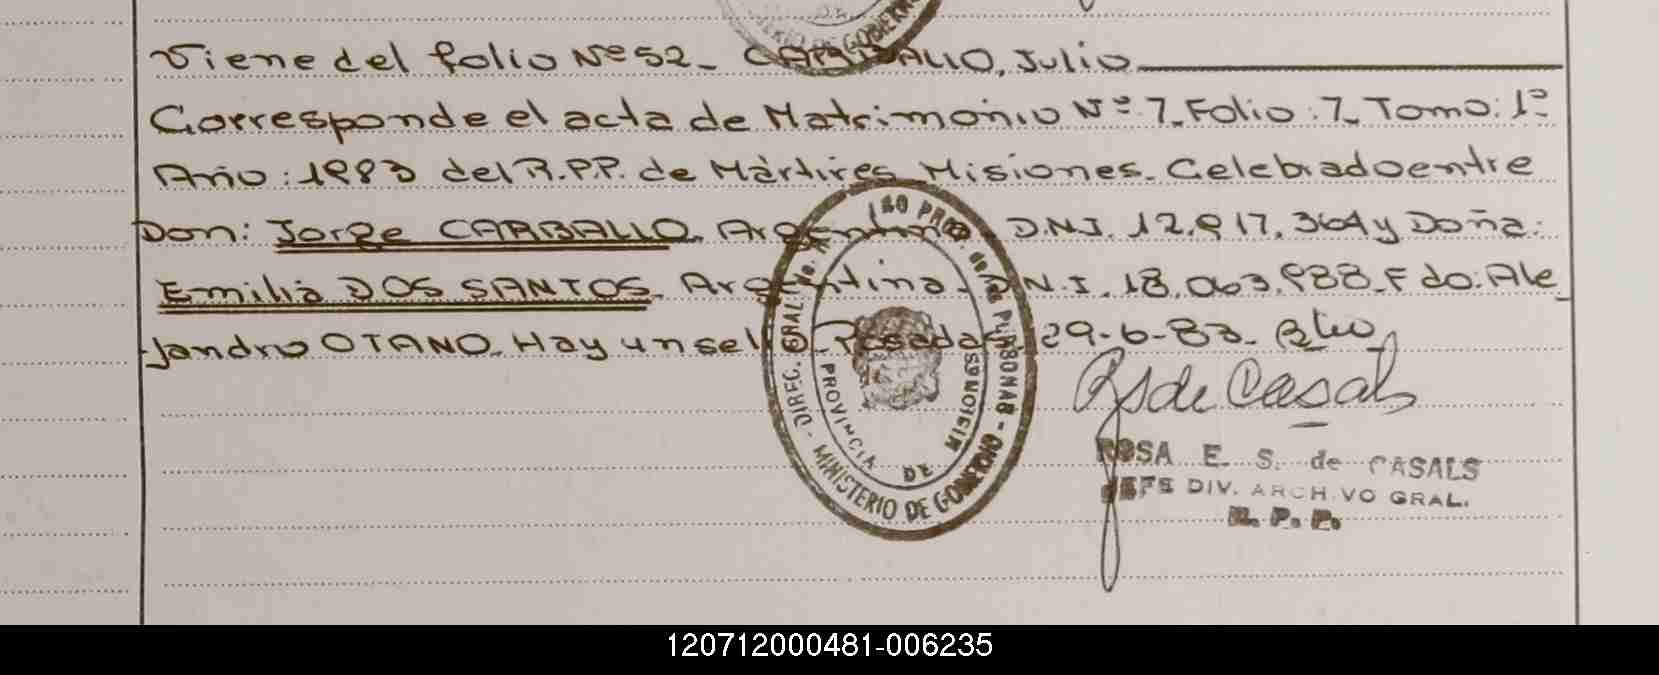 Viene del folio Nº 52_ CARBALLO, Julio
Corresponde el acta de Matrimonio Nº 7_ Folio: 7_ Tomo: 1º
Año: 1983 del R.P.P. de Mártires Misiones_ Celebrado entre
Don: Jorge CARBALLO, Argentino, D.N.I. 12.917.364 y Doña:
Emilia DOS SANTOS, Argentina_ D.N.I. 18.063.988_ Fdo: Ale_
jandro OTANO_ Hay un sello_ Posadas, 29-6-83_
R S de Casals
ROSA E. S. de CASALS
JEFE DIV. ARCHIVO GRAL.
R. P. P.
DIREC. GRAL.
MINISTERIO DE GOBIERNO
PROVINCIA DE MISIONES
120712000481-006235